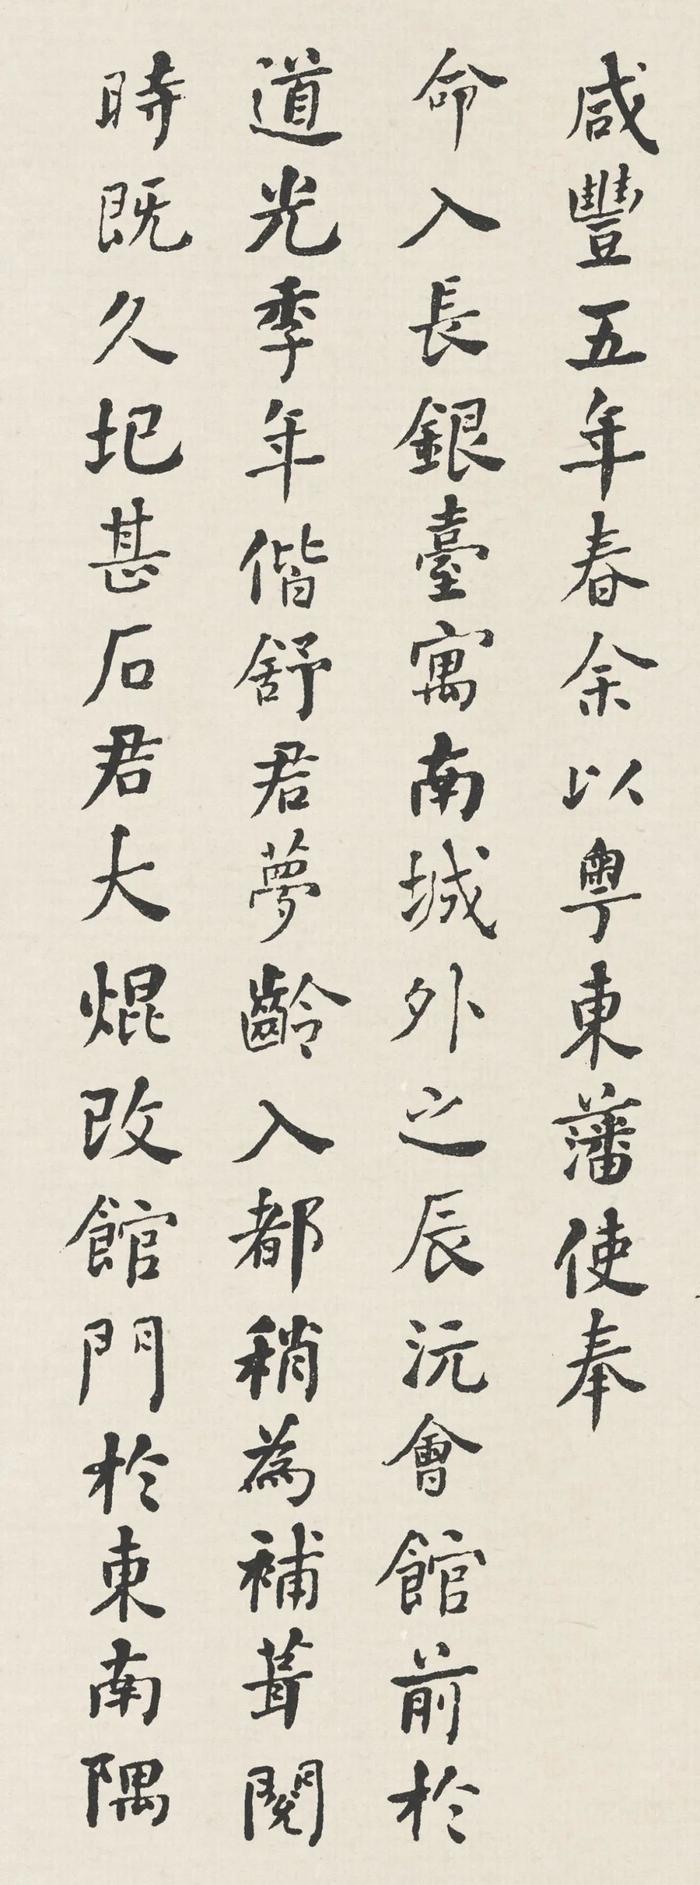 咸豐五年春余以粵東藩使奉
命入長銀臺寓南城外之辰沅會館前於
道光季年偕舒君夢齡入都稍為補葺閱
時既久圯甚石君大焜改館門於東南隅